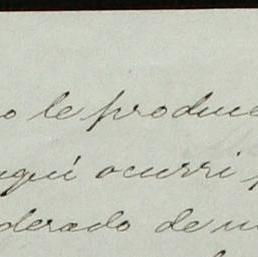 o le produce
aquí ocurri
derado de